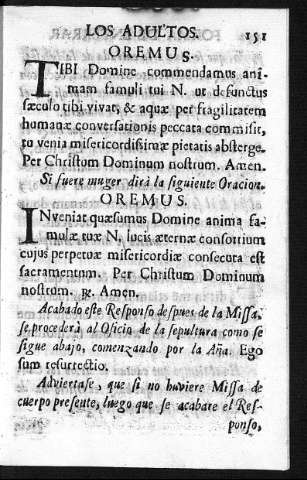 LOS ADULTOS. 151
OREMUS.
TIBI Domine commendamus ani-
mam famuli tui N. ut defunctus
sæculo tibi vivat, & aquæ per fragilitatem
humanæ conversationis peccata commisit,
tu venia misericordissimæ pietatis absterge.
Per Christum Dominum nostrum. Amen.
Si fuere muger dirà la siguiente Oracion.
OREMUS.
INveniat quæsumus Domine anima fa-
mulæ tuæ N. lucis æternæ consortium
cujus perpetuæ misericordiæ consecuta est
sacramentum. Per Christum Dominum
nostrum. ℟. Amen.
Acabado este Responso despues de la Missa,
se procederà al Oficio de la sepultura como se
sigue abajo, comenzando por la Aña. Ego
sum resurrectio.
Adviertase, que si no huviere Missa de
cuerpo presente, luego que se acabare el Res-
ponso,